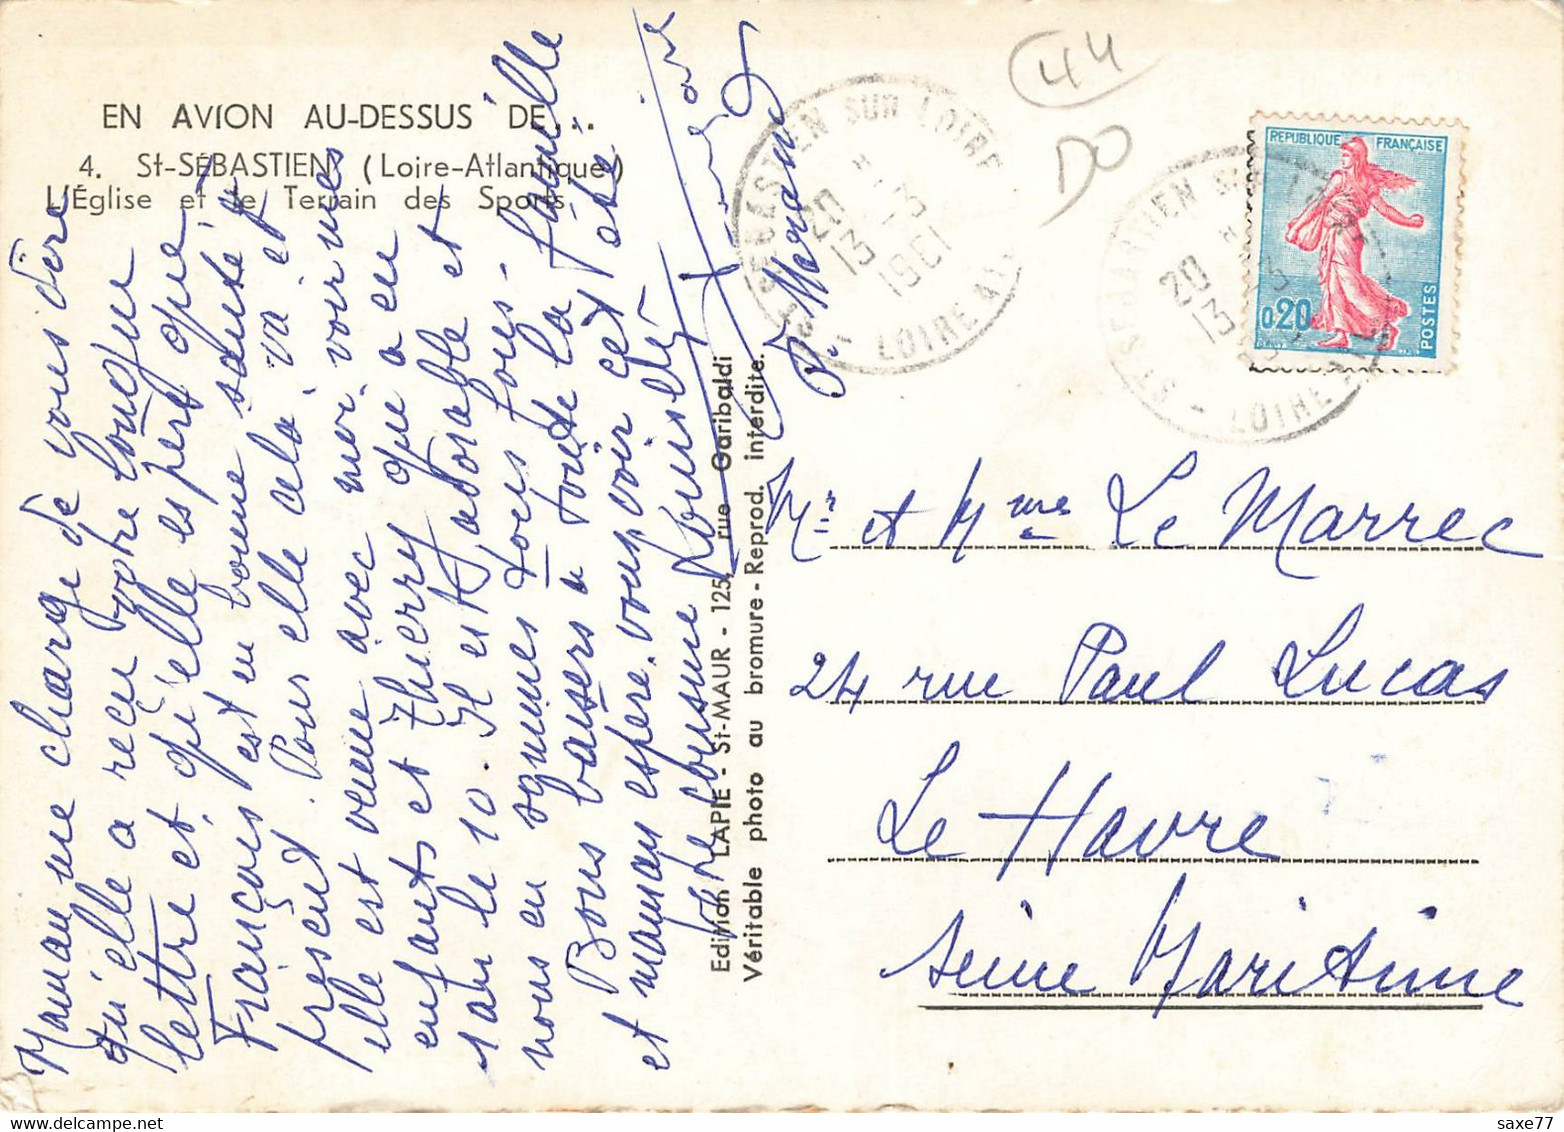 EN AVION AU-DESSUS DE...
4. St-SÉBASTIEN (Loire-Atlantique)
L'Église et le Terrain des Sports
Maman me charge de vous dire
qu'elle a reçu votre longue
lettre et qu'elle espère que
François est en bonne santé à
présent. Pour elle cela va et
elle est venue avec moi voir mes
enfants et Thierry qui a eu
1 an le 10. Il est adorable et
nous en sommes tous fous -
Bons baisers à toute la famille
et maman espère vous voir cet été
Votre cousine Louisette
P. Menand
Edition LAPIE - St-MAUR - 125, rue Garibaldi
Véritable photo au bromure - Reprod. interdite.
44
DO
ST SEBASTIEN SUR LOIRE
20 H
13 - 3
1961
LOIRE ATL.
ST SEBASTIEN SUR LOIRE
20 H
13 - 3
LOIRE
REPUBLIQUE FRANÇAISE
0,20
POSTES
Mr et Mme Le Marrec
24 rue Paul Lucas
Le Havre
Seine Maritime
saxe77